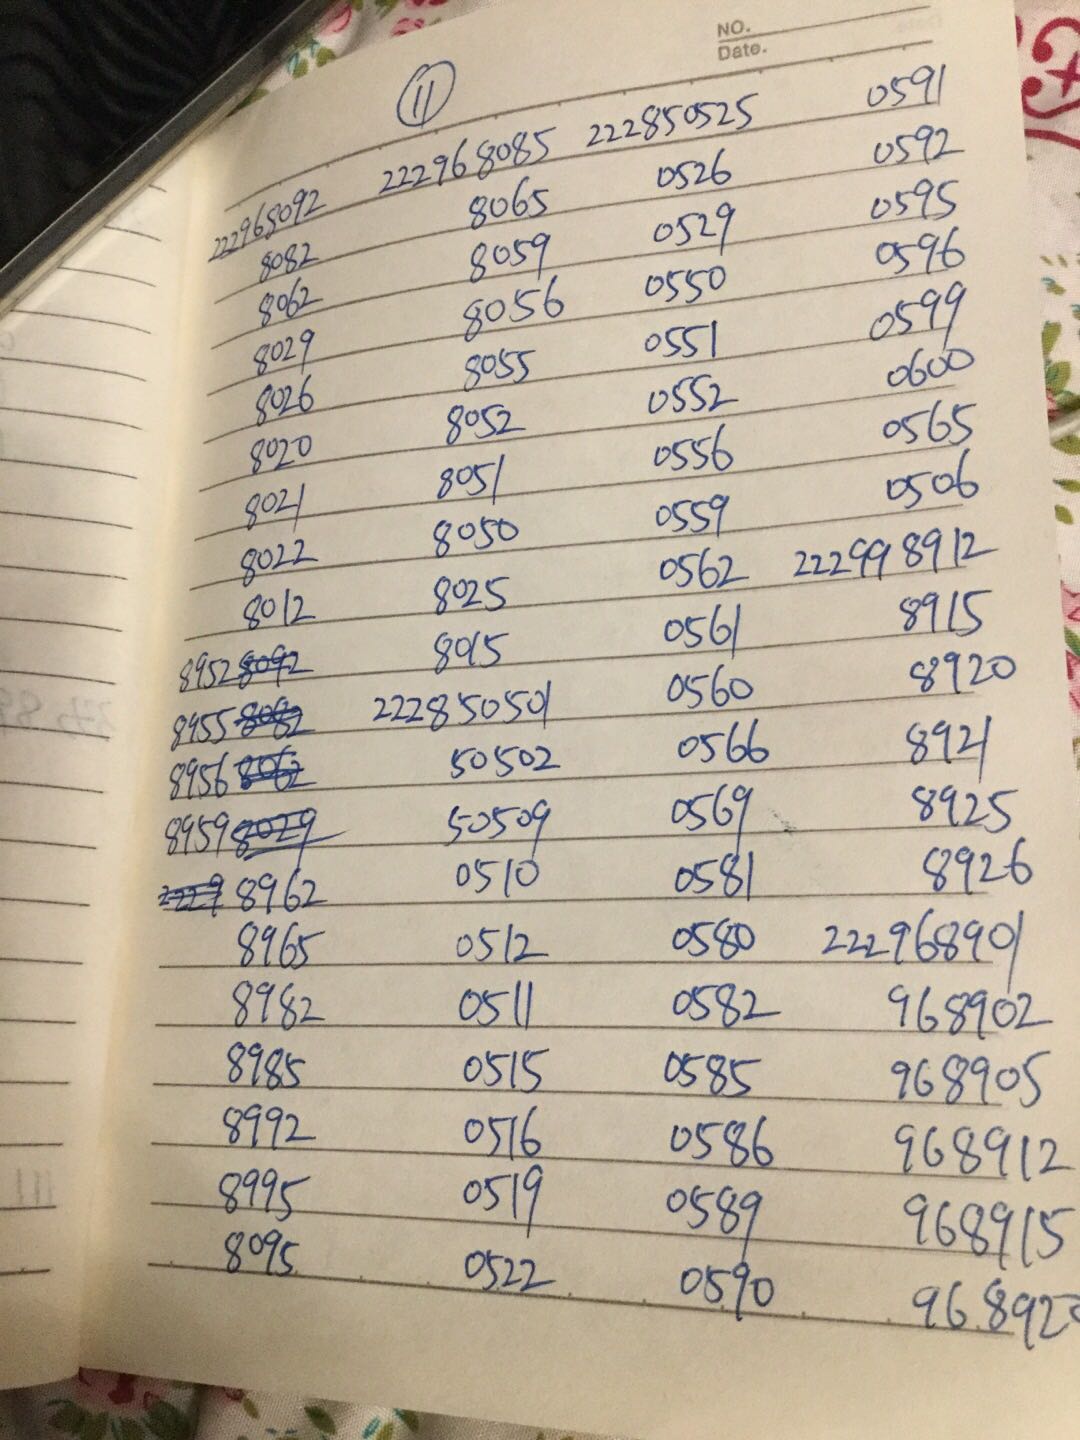 NO.
Date.
11
222968092 222968085 222850525 0591
8082 8065 0526 0592
8062 8059 0529 0595
8029 8056 0550 0596
8026 8055 0551 0599
8020 8052 0552 0600
8021 8051 0556 0565
8022 8050 0559 0506
8012 8025 0562 222998912
8952 8092 8015 0561 8915
8955 8082 222850501 0560 8920
8956 8062 50502 0566 8921
8959 8029 50509 0569 8925
2229 8962 0510 0581 8926
8965 0512 0580 222968901
8982 0511 0582 968902
8985 0515 0585 968905
8992 0516 0586 968912
8995 0519 0589 968915
8095 0522 0590 968920